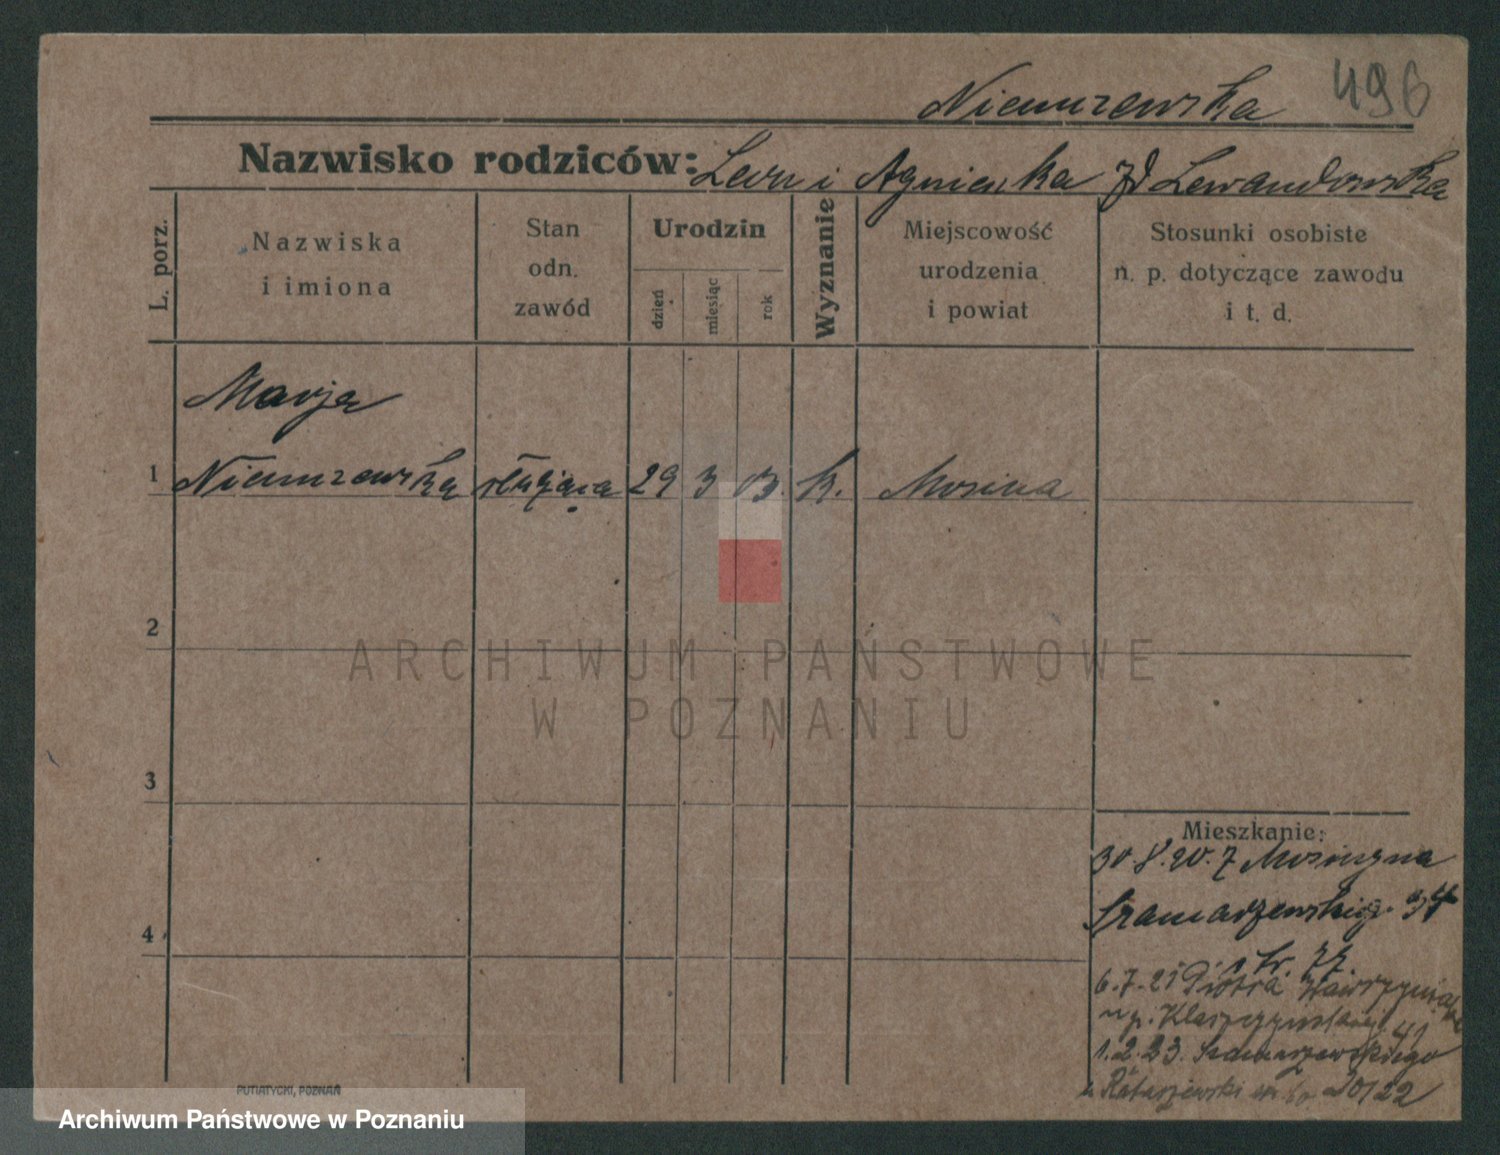 Niemrzewska 496
Nazwisko rodziców: Leon i Agnieszka zd Lewandowska
L. porz.
Nazwiska
i imiona
Stan
odn.
zawód
Urodzin
dzień
miesiąc
rok
Wyznanie
Miejscowość
urodzenia
i powiat
Stosunki osobiste
n. p. dotyczące zawodu
i t. d.
Marja
1 Niemrzewska służąca 29 3 03. k. Mosina
2
ARCHIWUM PAŃSTWOWE
W POZNANIU
3
Mieszkanie:
30.8.20. z
Szamarzewskiego 34
4
6.7.21 Piotra Wawrzyniaka
1.2.23. Szamarzewskiego
20/22
PUTIATYCKI, POZNAŃ
Archiwum Państwowe w Poznaniu